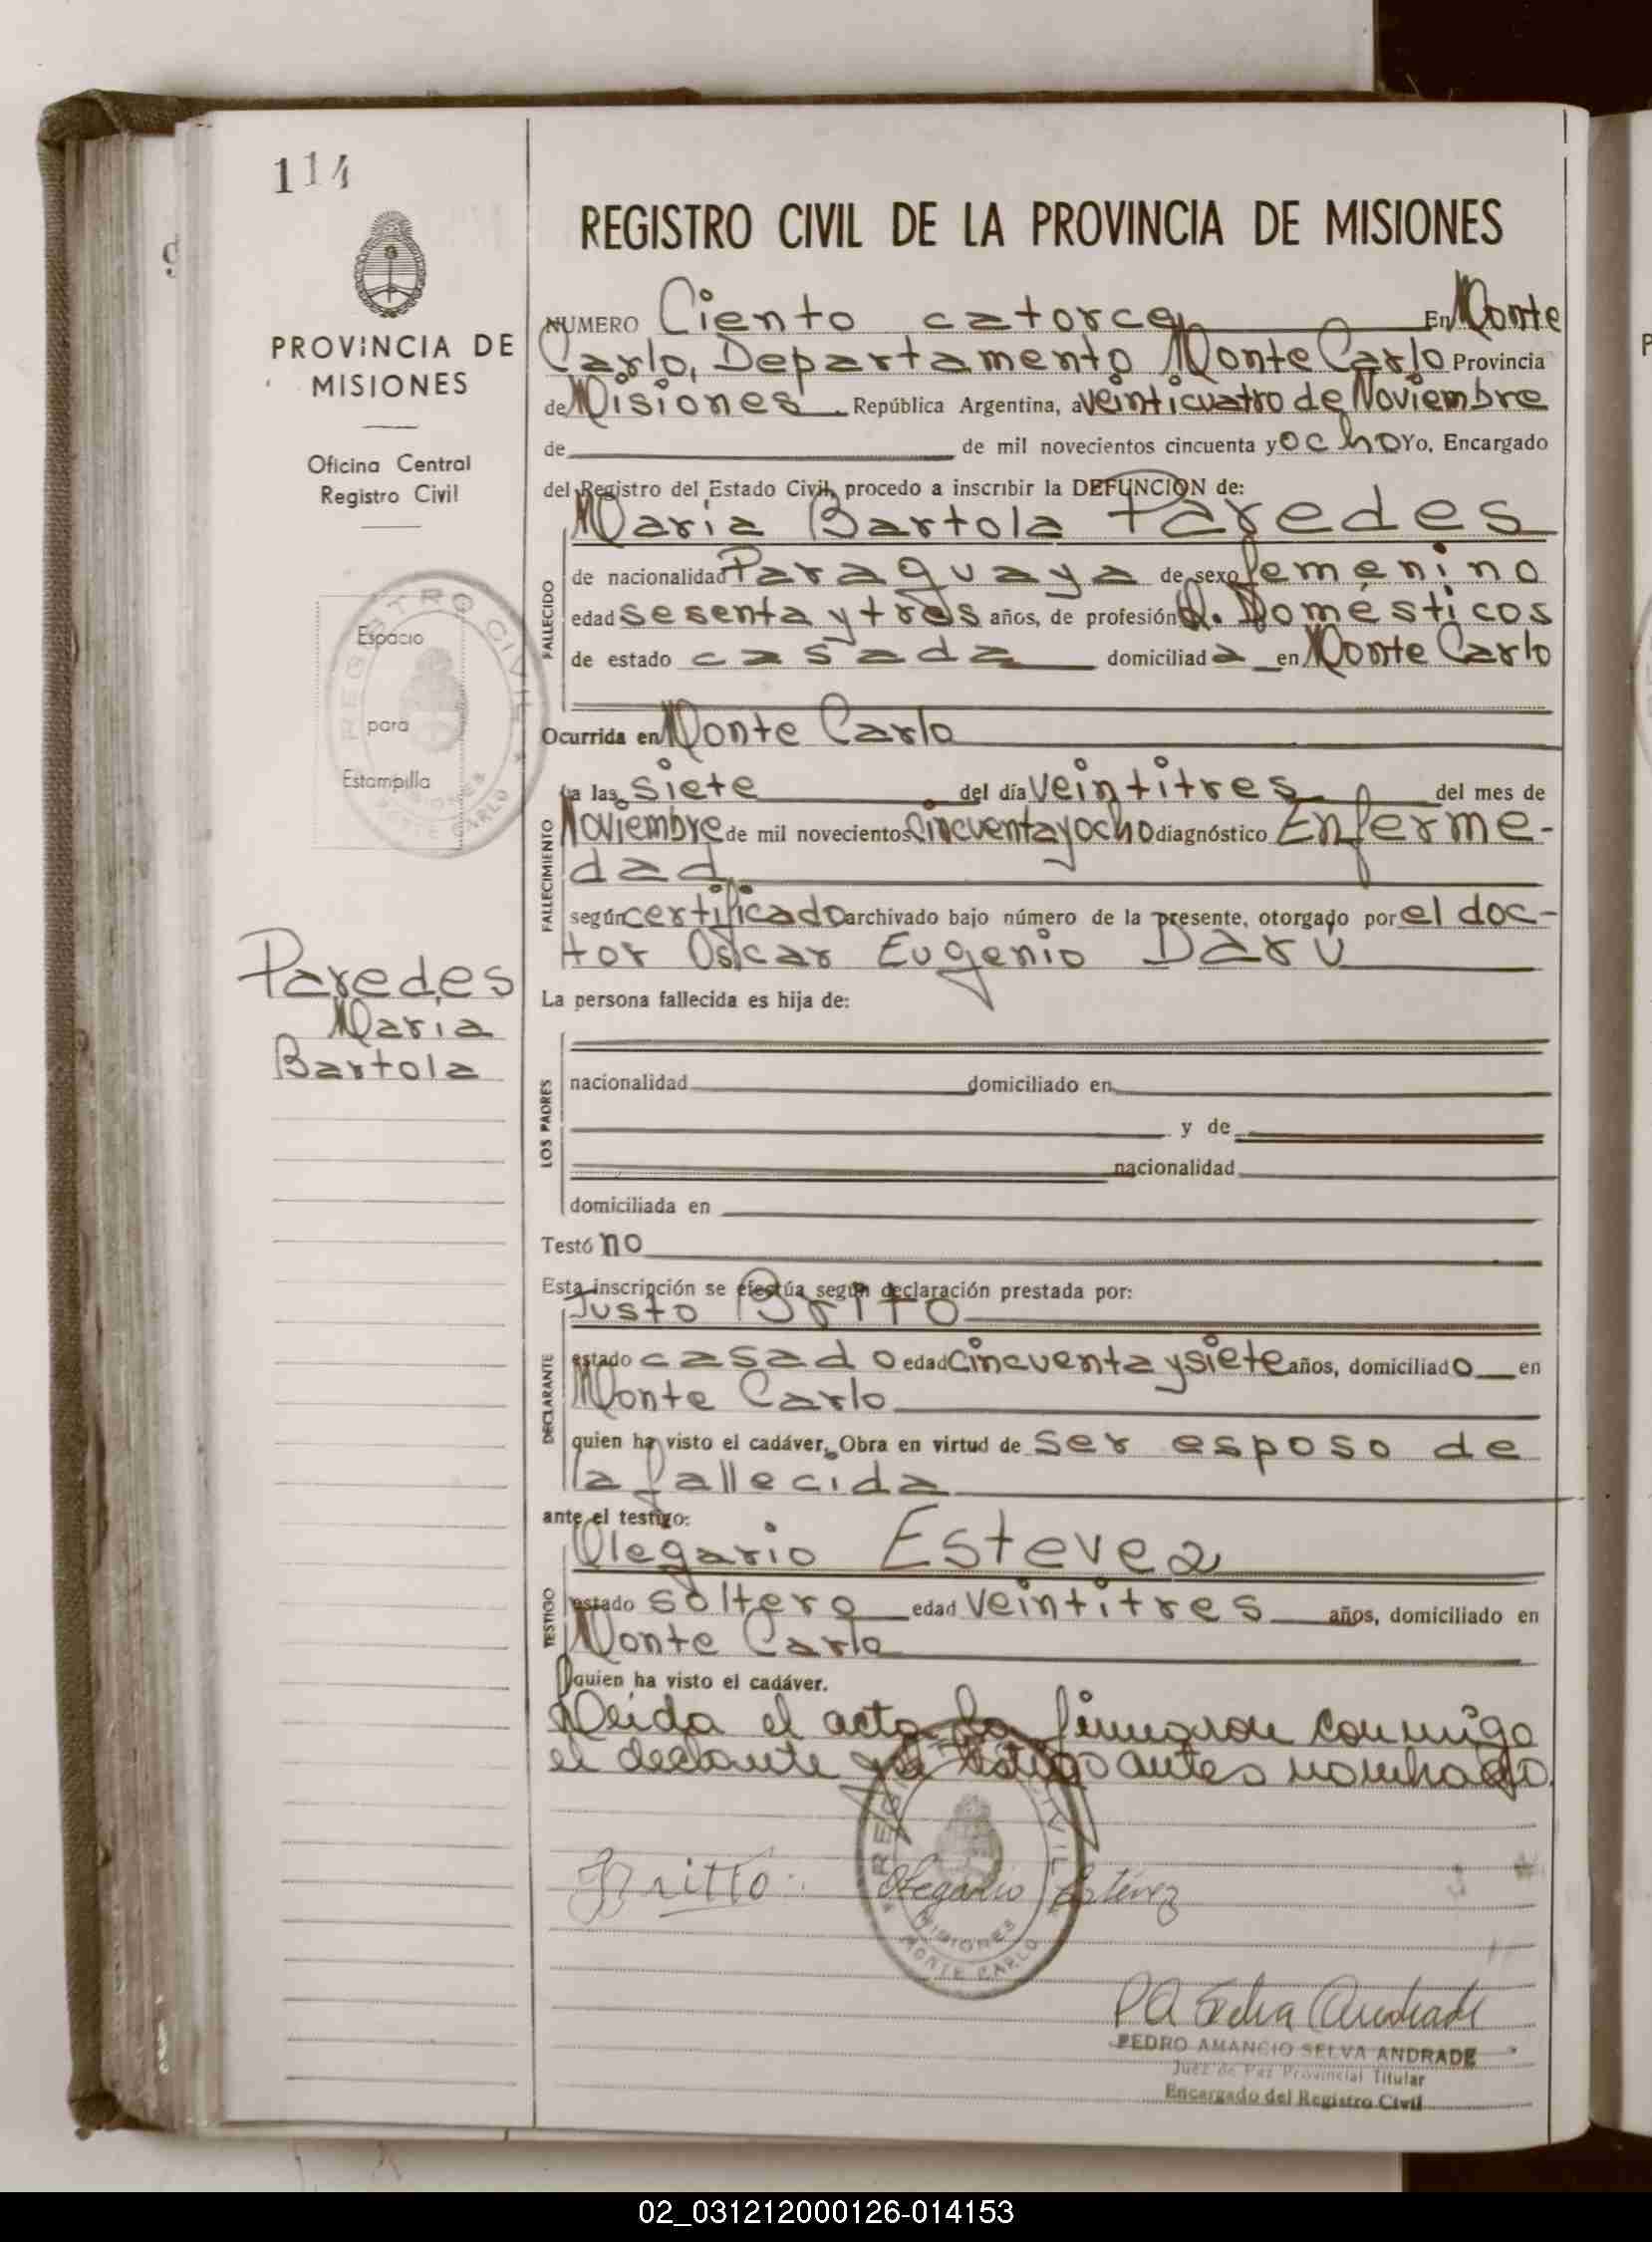 114
PROVINCIA DE
MISIONES
Oficina Central
Registro Civil
Espacio
para
Estampilla
REGISTRO CIVIL
MISIONES
MONTE CARLO
Paredes
Maria
Bartola
REGISTRO CIVIL DE LA PROVINCIA DE MISIONES
NUMERO Ciento catorce En Monte
Carlo, Departamento Monte Carlo Provincia
de Misiones República Argentina, a veinticuatro de Noviembre
de de mil novecientos cincuenta y ocho Yo, Encargado
del Registro del Estado Civil, procedo a inscribir la DEFUNCION de:
Maria Bartola Paredes
FALLECIDO
de nacionalidad Paraguaya de sexo femenino
edad sesenta y tres años, de profesión Q. Domésticos
de estado casada domiciliada en Monte Carlo
Ocurrida en Monte Carlo
FALLECIMIENTO
a las siete del día veintitres del mes de
Noviembre de mil novecientos cincuenta y ocho diagnóstico Enferme-
dad
según certificado archivado bajo número de la presente, otorgado por el doc-
tor Oscar Eugenio Darú
La persona fallecida es hija de:
LOS PADRES
nacionalidad domiciliado en
y de
nacionalidad
domiciliada en
Testó no
Esta inscripción se efectúa según declaración prestada por:
Justo Brito
DECLARANTE
estado casado edad cincuenta y siete años, domiciliado en
Monte Carlo
quien ha visto el cadáver. Obra en virtud de ser esposo de
la fallecida
ante el testigo:
Olegario Estevez
TESTIGO
estado soltero edad veintitres años, domiciliado en
Monte Carlo
quien ha visto el cadáver.
Leida el acta la firmaron conmigo
el declante y el testigo antes nombrado.
JBritto.
Olegario Estévez
REGISTRO CIVIL
MISIONES
MONTE CARLO
P A Selva Andrade
PEDRO AMANCIO SELVA ANDRADE
Juez de Paz Provincial Titular
Encargado del Registro Civil
02_031212000126-014153